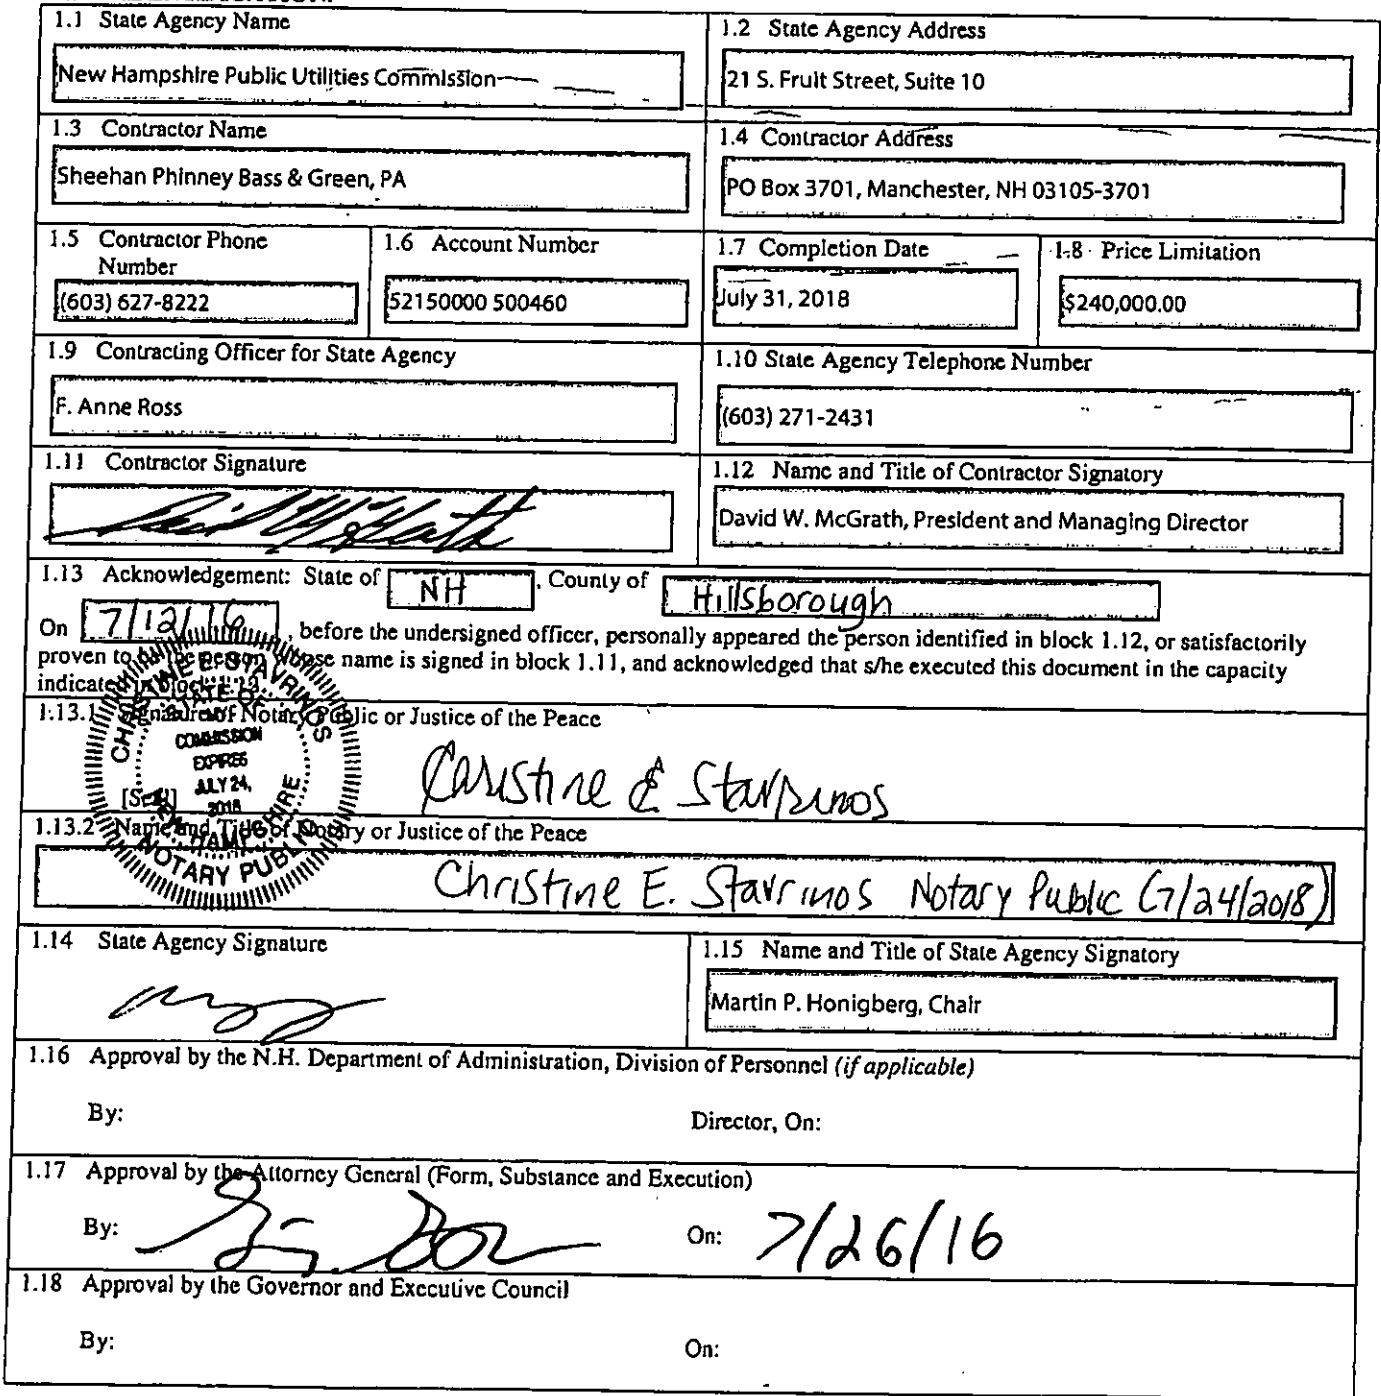 1.1 State Agency Name
New Hampshire Public Utilities Commission
1.2 State Agency Address
21 S. Fruit Street, Suite 10
1.3 Contractor Name
Sheehan Phinney Bass & Green, PA
1.4 Contractor Address
PO Box 3701, Manchester, NH 03105-3701
1.5 Contractor Phone
Number
(603) 627-8222
1.6 Account Number
52150000 500460
1.7 Completion Date
July 31, 2018
1.8 Price Limitation
$240,000.00
1.9 Contracting Officer for State Agency
F. Anne Ross
1.10 State Agency Telephone Number
(603) 271-2431
1.11 Contractor Signature
1.12 Name and Title of Contractor Signatory
David W. McGrath, President and Managing Director
1.13 Acknowledgement: State of NH , County of Hillsborough
On 7/12/16 , before the undersigned officer, personally appeared the person identified in block 1.12, or satisfactorily
proven to be the person whose name is signed in block 1.11, and acknowledged that s/he executed this document in the capacity
indicated in block 1.12.
1.13.1 Signature of Notary Public or Justice of the Peace
Christine E Stavrinos
[Seal]
CHRISTINE E. STAVRINOS
STATE OF
MY
COMMISSION
EXPIRES
JULY 24,
2018
NEW HAMPSHIRE
NOTARY PUBLIC
1.13.2 Name and Title of Notary or Justice of the Peace
Christine E. Stavrinos Notary Public (7/24/2018)
1.14 State Agency Signature
1.15 Name and Title of State Agency Signatory
Martin P. Honigberg, Chair
1.16 Approval by the N.H. Department of Administration, Division of Personnel (if applicable)
By:
Director, On:
1.17 Approval by the Attorney General (Form, Substance and Execution)
By:
On: 7/26/16
1.18 Approval by the Governor and Executive Council
By:
On: